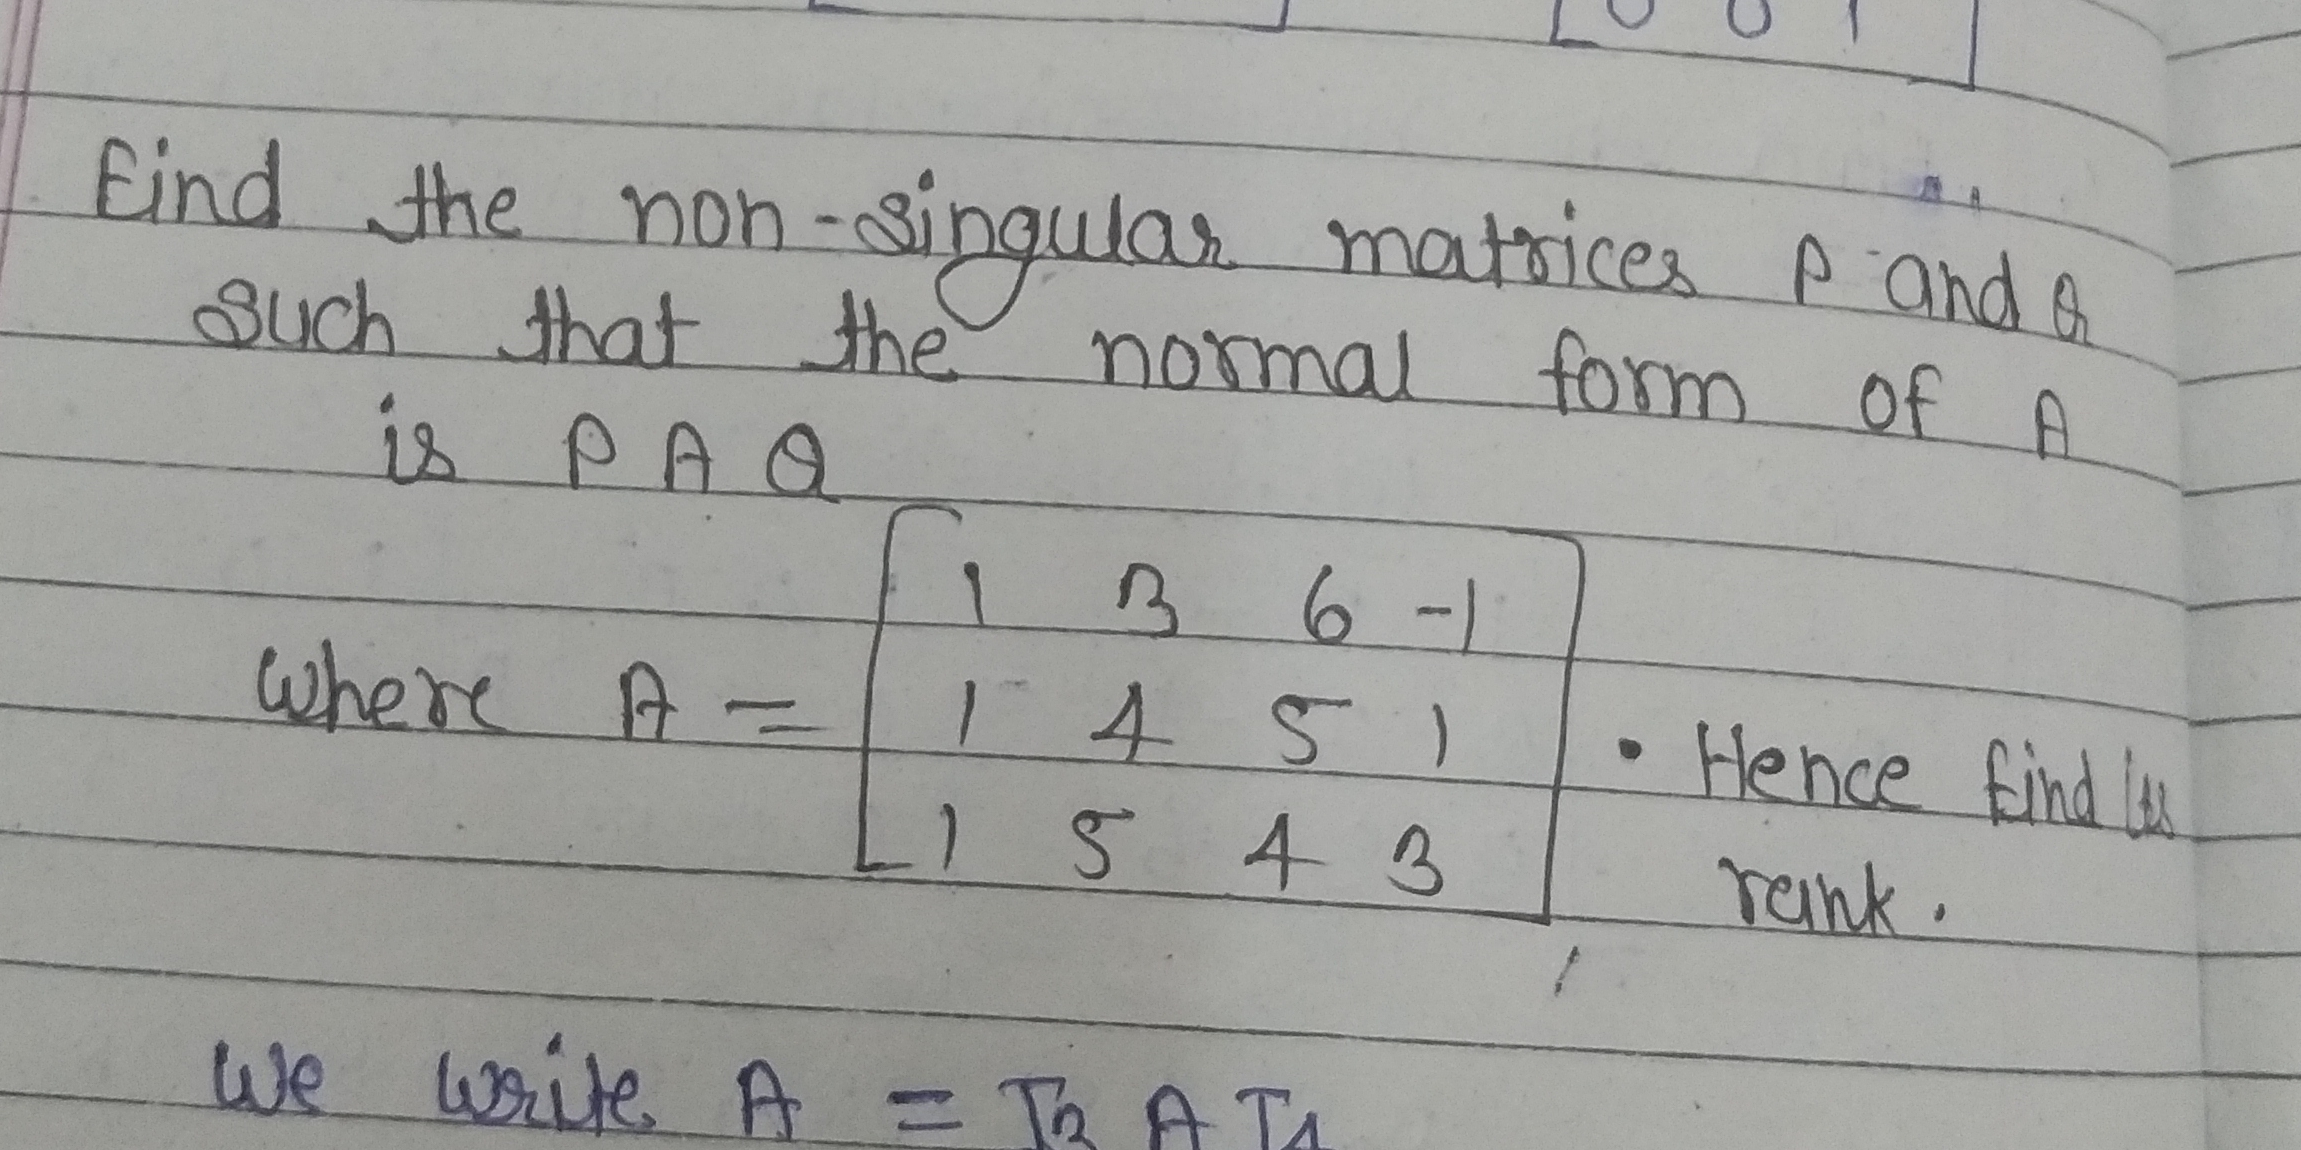 0 0 1
Find the non-singular matrices P and Q
such that the normal form of A
is P A Q
1 3 6 -1
where A = 1 4 5 1 . Hence find its
1 5 4 3 rank.
We write A = I3 A I4